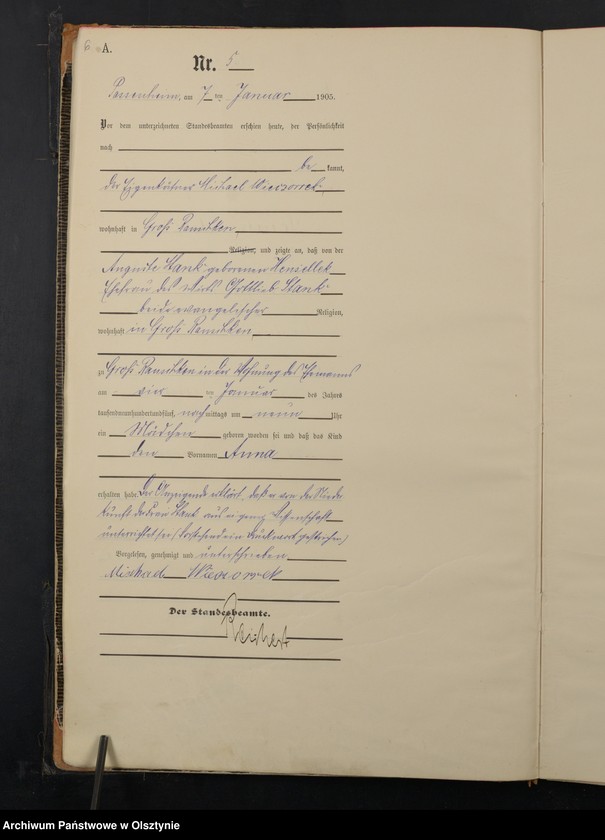 6
A.
Nr. 5
Passenheim, am 7 ten Januar 1905.
Vor dem unterzeichneten Standesbeamten erschien heute, der Persönlichkeit
nach
be kannt,
der Eigentümer Michael Wieczorrek
wohnhaft in Groß Rauschken
Religion, und zeigte an, daß von der
Auguste Stank geborenen
Ehefrau des Gottlieb Stank
beide evangelischer Religion,
wohnhaft in Groß Rauschken,
zu Groß Rauschken in der Wohnung des Ehemanns
am vier ten Januar des Jahres
tausendneunhundertundfünf, nachmittags um neun Uhr
ein Mädchen geboren worden sei und daß das Kind
den Vornamen Anna
erhalten habe. Der Anzeigende erklärt, daß er von der Nieder
kunft der Frau Stank aus eigener Wissenschaft
unterrichtet sei. (Vorstehend ein Druckwort gestrichen)
Vorgelesen, genehmigt und unterschrieben
Michael Wieczorrek
Der Standesbeamte.
Reichert
Archiwum Państwowe w Olsztynie